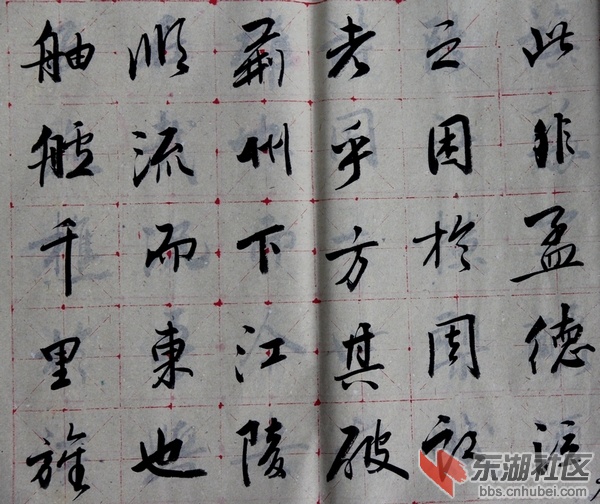 此非孟德
之困於周郎
者乎方其破
荊州下江陵
順流而東也
舳艫千里旌
东湖社区
bbs.cnhubei.com